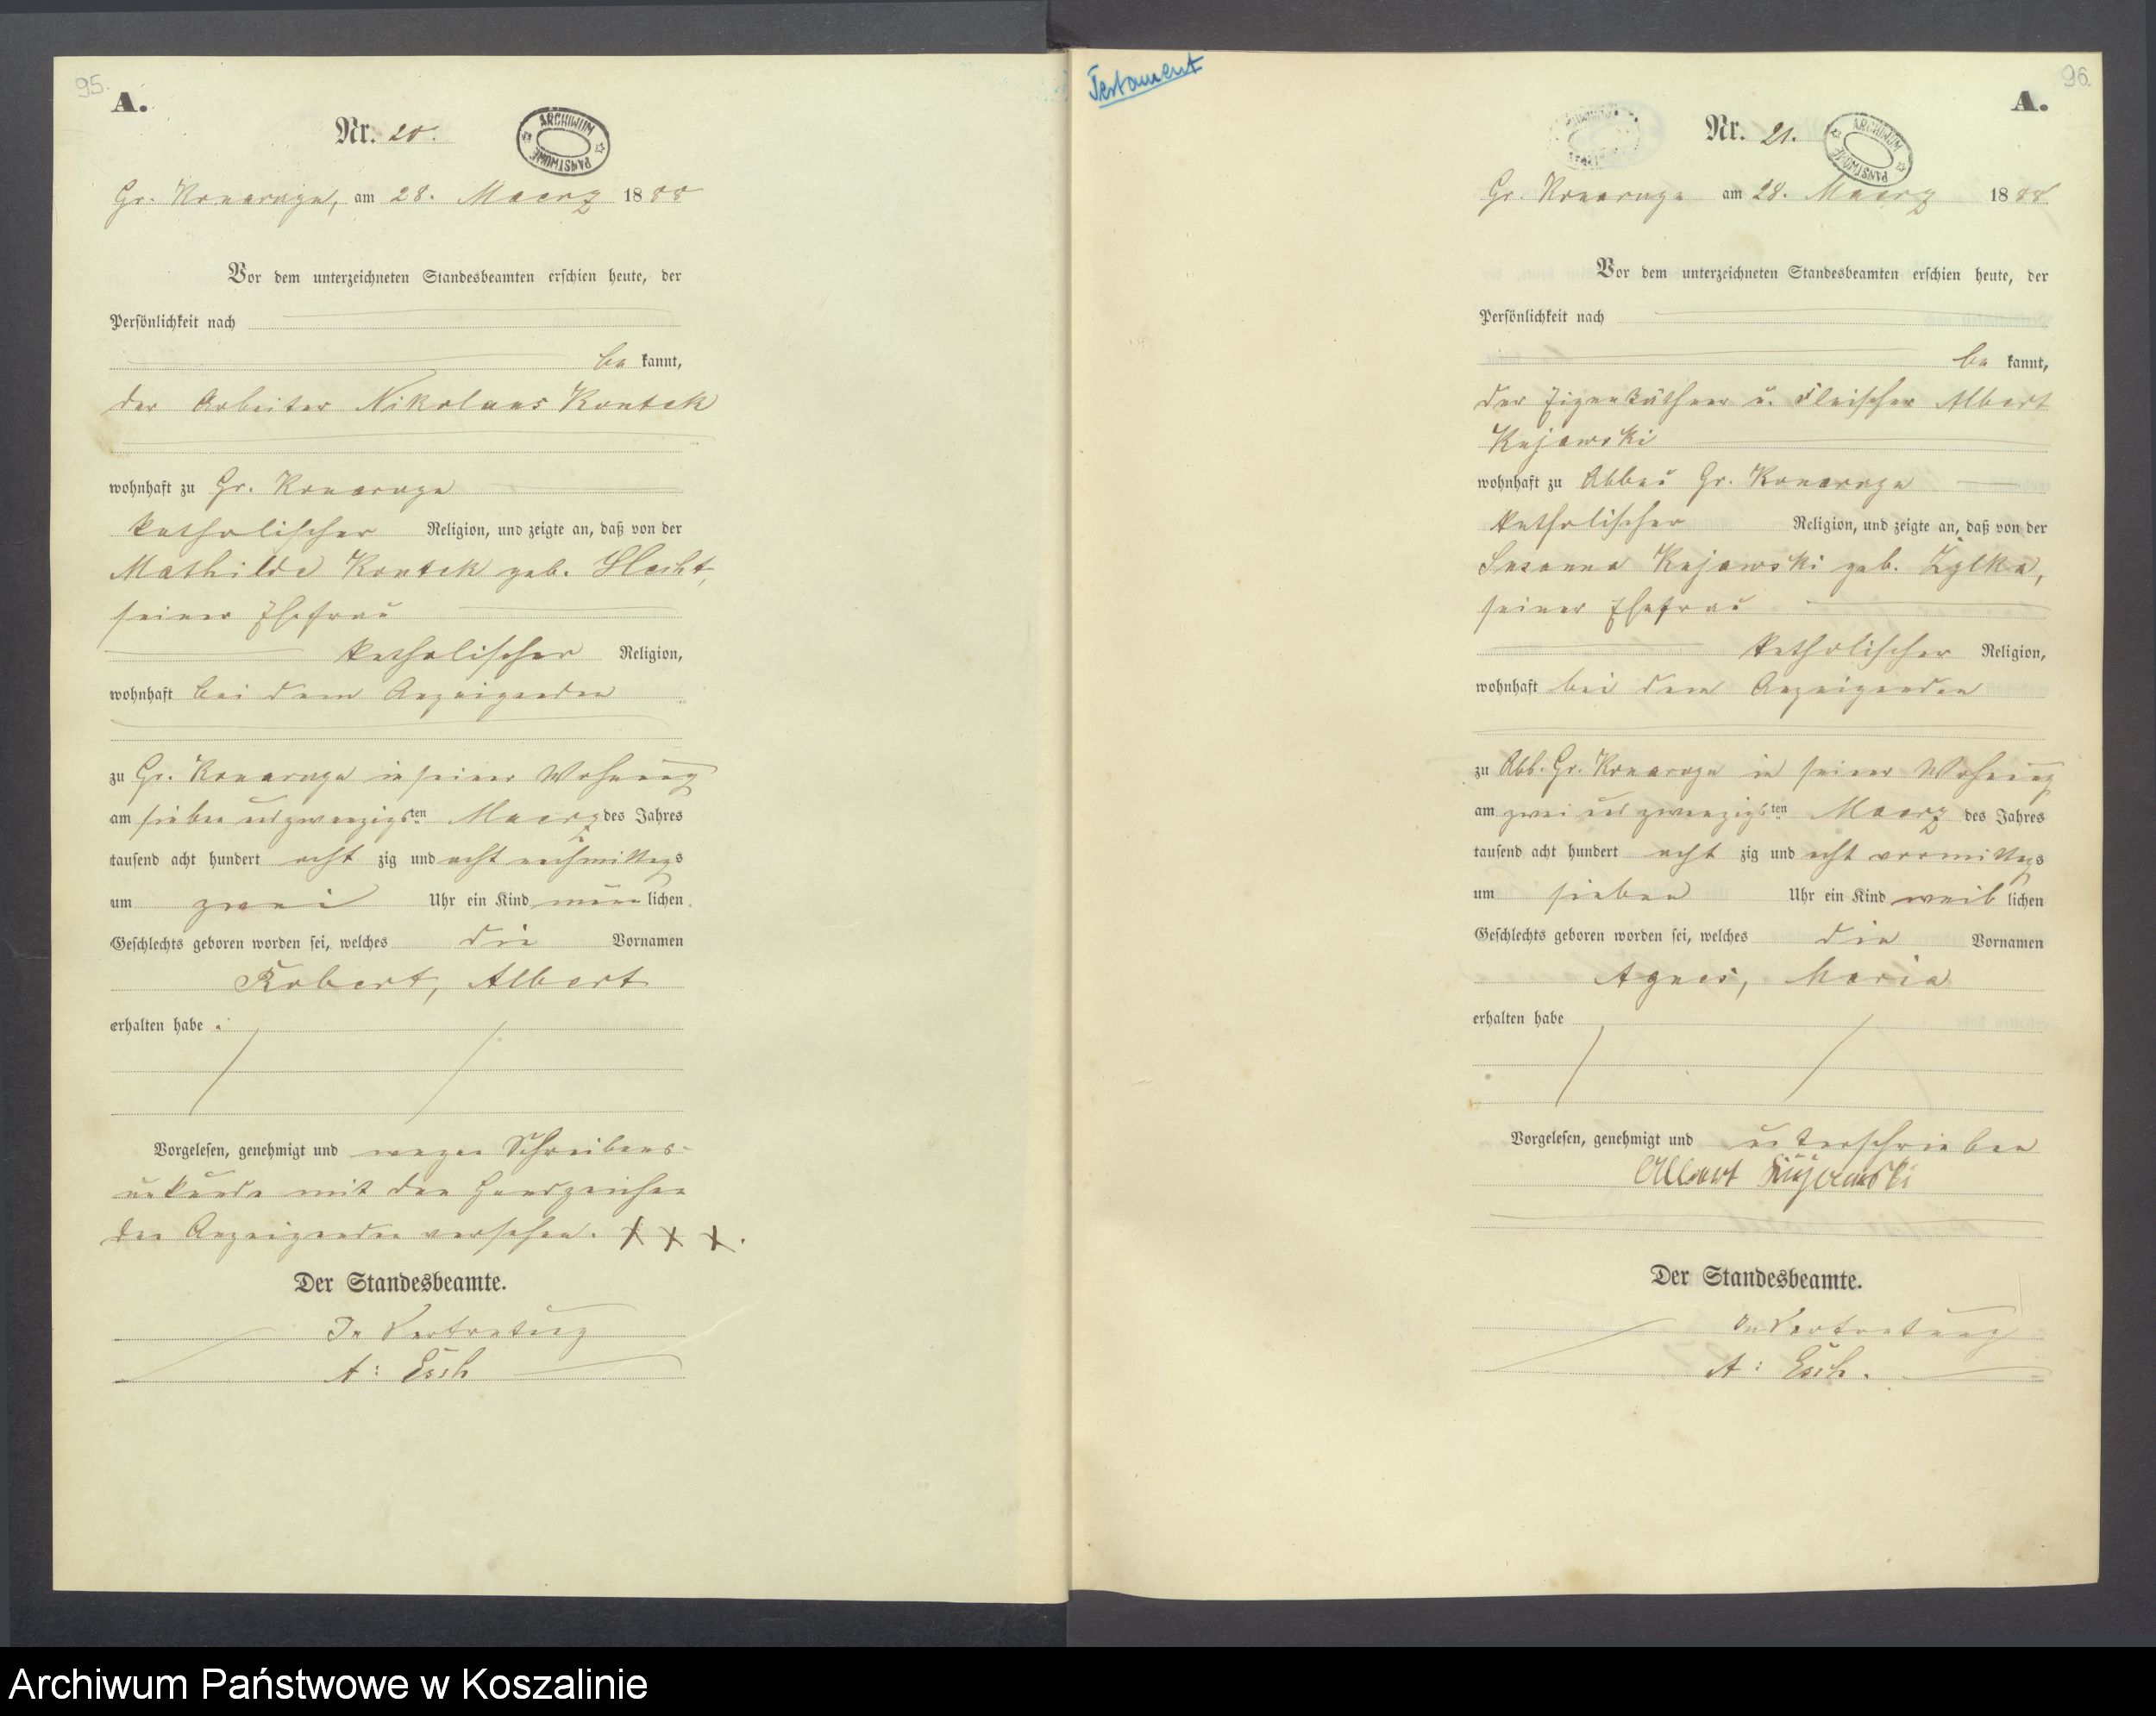 95.
A.
Nr. 20.
ARCHIWUM PAŃSTWOWE
Gr. Konarzyn, am 28. Maerz 1888
Vor dem unterzeichneten Standesbeamten erschien heute, der
Persönlichkeit nach
be kannt,
der Arbeiter Nikolaus Kontek
wohnhaft zu Gr. Konarzyn
katholischer Religion, und zeigte an, daß von der
Mathilde Kontek geb.
seiner Ehefrau
katholischer Religion,
wohnhaft bei dem Anzeigenden
zu Gr. Konarzyn in seiner Wohnung
am sieben und zwanzigsten Maerz des Jahres
tausend acht hundert acht zig und acht nachmittags
um zwei Uhr ein Kind männ lichen
Geschlechts geboren worden sei, welches die Vornamen
Robert, Albert
erhalten habe.
Vorgelesen, genehmigt und wegen Schreibens-
unkunde mit den Handzeichen
des Anzeigenden versehen. X X X.
Der Standesbeamte.
In Vertretung
A: Esch
Testament
96.
A.
Nr. 21.
ARCHIWUM PAŃSTWOWE
Gr. Konarzyn am 28. Maerz 1888
Vor dem unterzeichneten Standesbeamten erschien heute, der
Persönlichkeit nach
be kannt,
der Eigenkäthner u. Fleischer Albert
Kujawski
wohnhaft zu Abbau Gr. Konarzyn
katholischer Religion, und zeigte an, daß von der
Susanna Kujawski geb. Żylka,
seiner Ehefrau
katholischer Religion,
wohnhaft bei dem Anzeigenden
zu Abb. Gr. Konarzyn in seiner Wohnung
am zwei und zwanzigsten Maerz des Jahres
tausend acht hundert acht zig und acht vormittags
um sieben Uhr ein Kind weib lichen
Geschlechts geboren worden sei, welches die Vornamen
Agnes, Maria
erhalten habe
Vorgelesen, genehmigt und unterschrieben
Albert Kujawski
Der Standesbeamte.
In Vertretung
A: Esch.
Archiwum Państwowe w Koszalinie